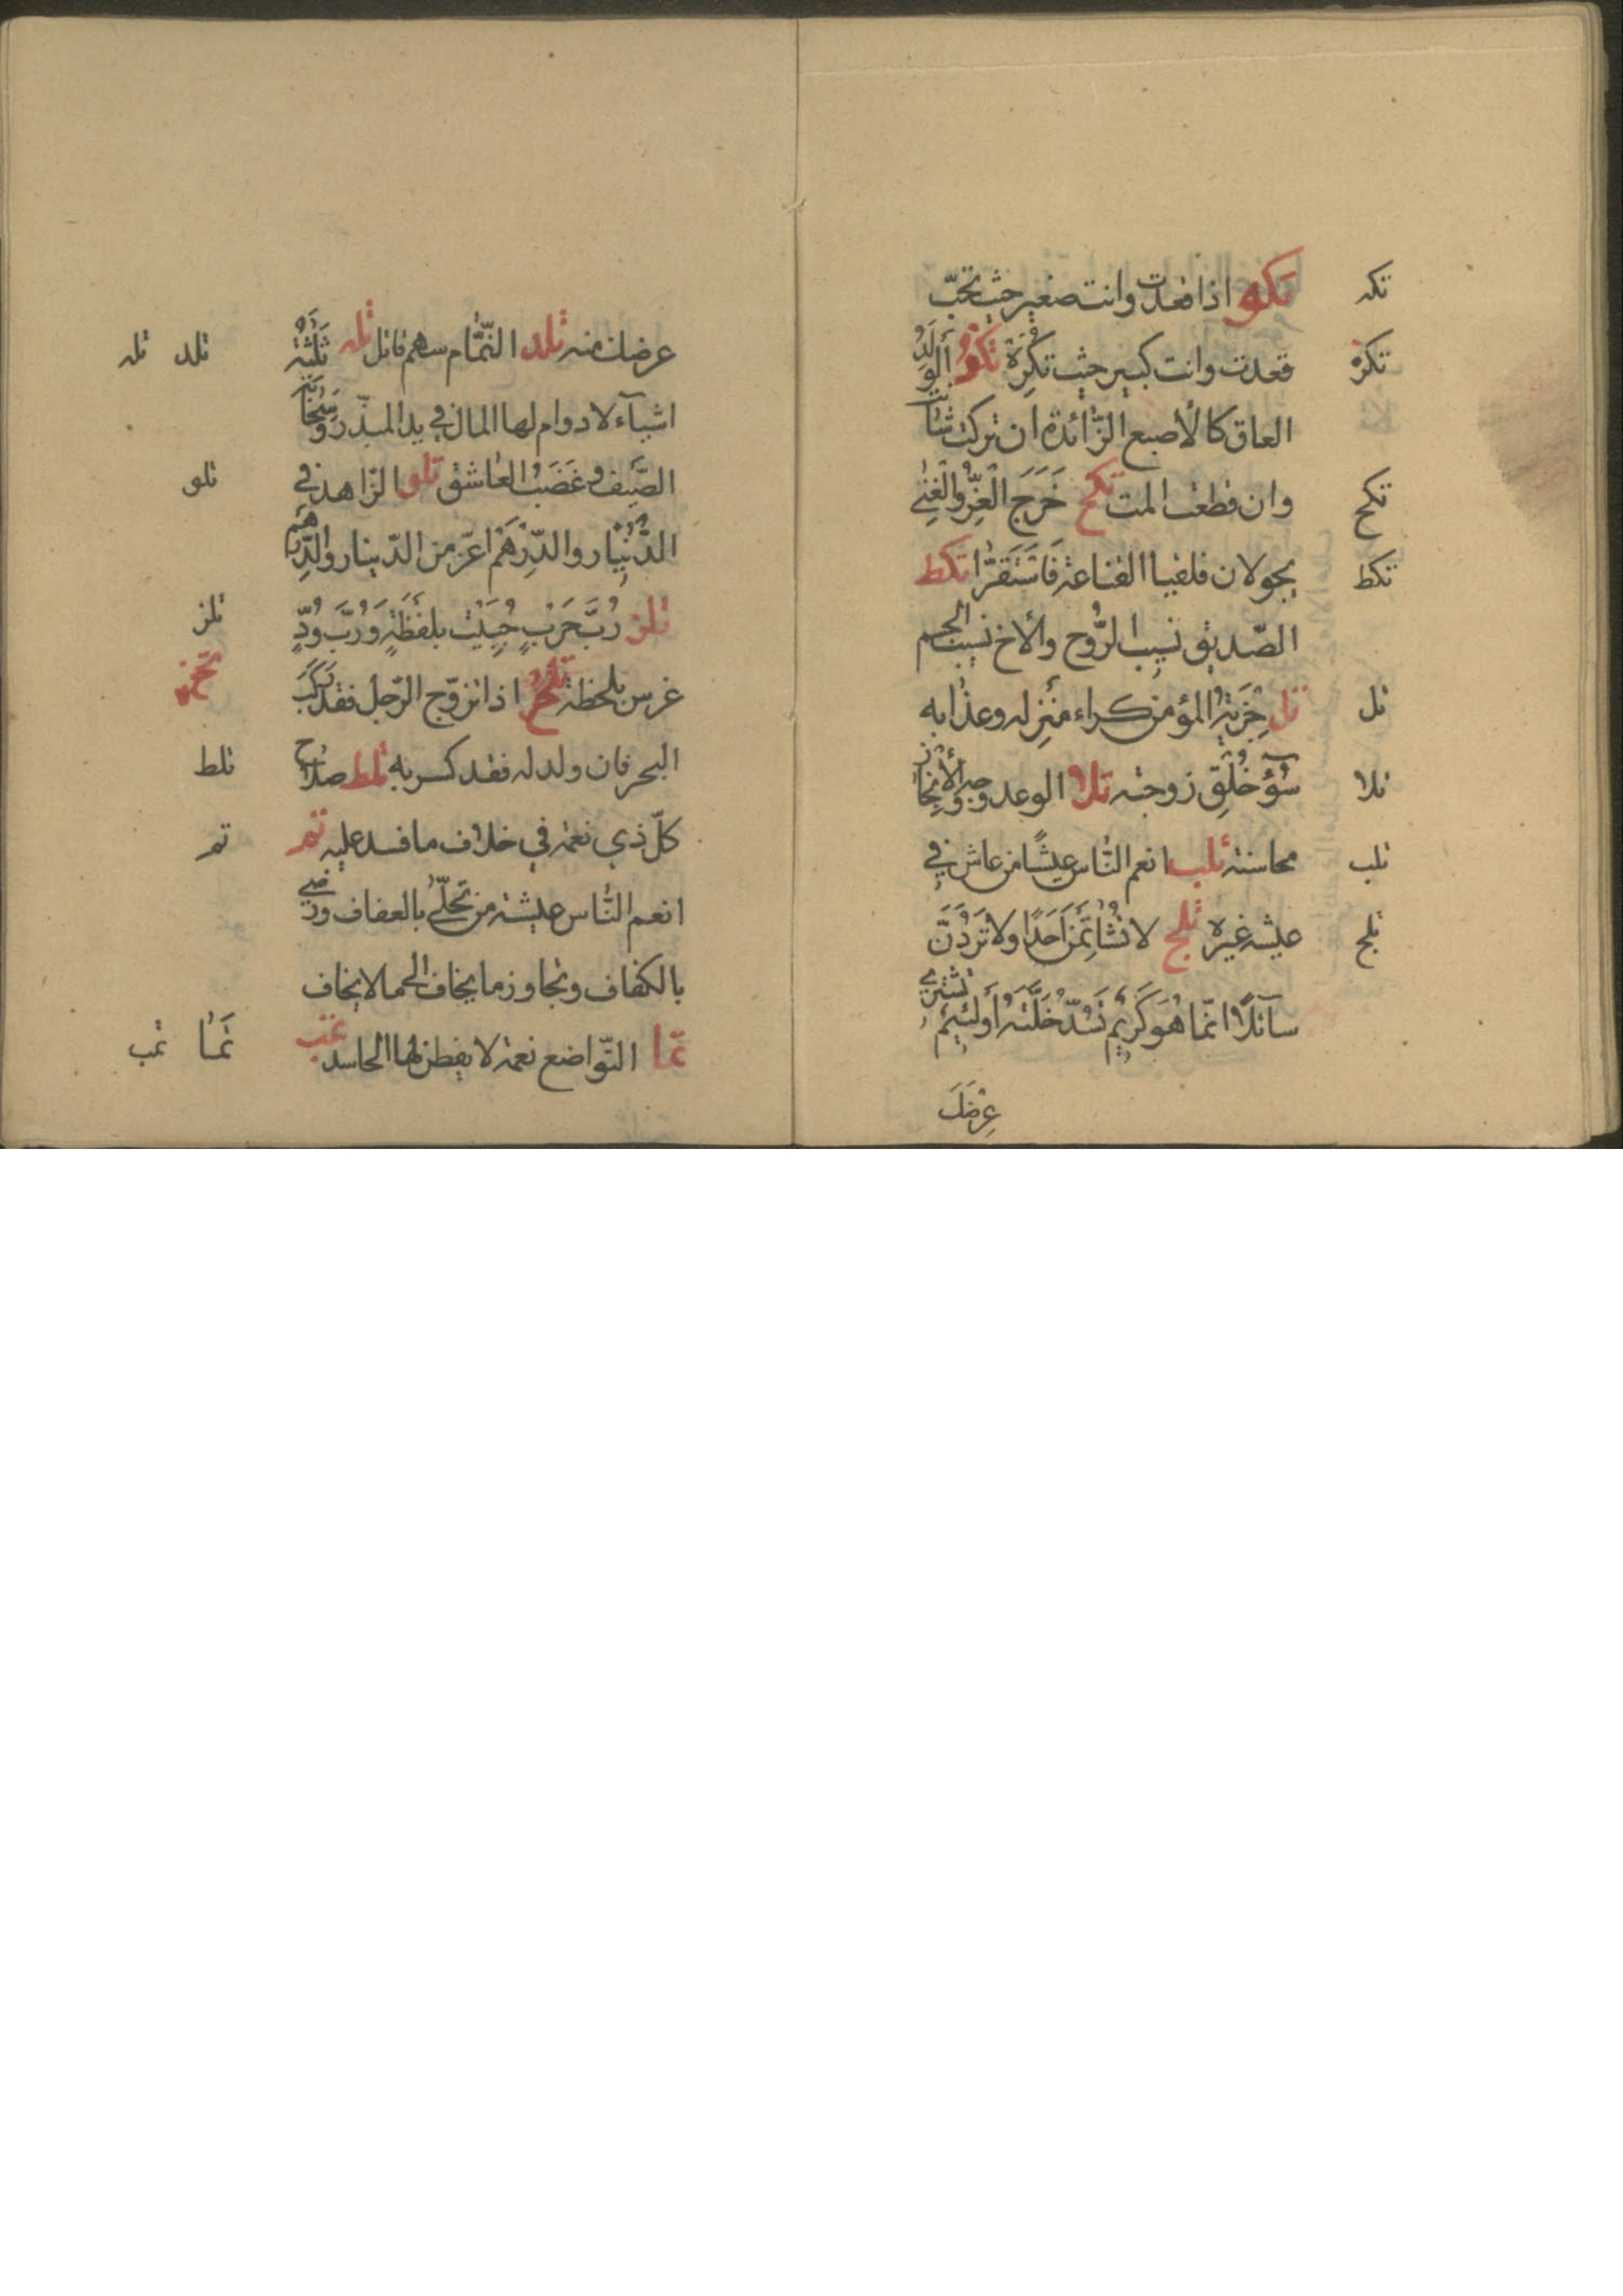 تكه
تكو اذا قعدت وانت صغير حيث تحبّ
تكز
قعدت وانت كبير حيث تكره تكو الولد
العاق كالأصبع الزّائدة ان تركت شانت
تكح
وان قطعت المت تكح خَرَجَ الْعِزُّ وَالْغِنٰى
تكط
يجولان فلقيا القناعة فَاسْتَقَرَّا تكط
الصّديق نسيب الرُّوح والأخ نسيب الجسم
تل
تل جِزْيَةُ المؤمن كراء منزله وعذابه
تلا
سُوءُ خُلُقِ زوجته تلا الوعد وجه والأنجاز
تلب
محاسنه تلب انعم النّاس عيشًا من عاش في
تلج
عيشه غيره تلج لا تُشَاتِمَنَّ اَحَدًا ولا تَرُدَّنَّ
سآئلًا انّما هُوَ كَرِيْمٌ تَسُدُّ خَلَّتَهُ أو لئيم تشتري
عِرْضَكَ
عرضك منه تلد النّمّام سهم قاتل تله ثَلٰثَةُ
تلد تله
اشيآء لا دوام لها المال في يد المبذّر وَسَحَابَةُ
الصّيف وغَضَبُ العاشق تلو الزّاهد في
تلو
الدّنيار والدِّرْهَم اعزّ من الدّينار والدِّرهم
تلز رُبَّ حَرْبٍ جُنِيَتْ بلفظةٍ وَرُبَّ وُدٍّ
تلز
غرس بلحظة تلح اذا تزوّج الرّجل فقد رَكِبَ
البحر فان ولد له فقد كسر به تلط صلاح
تلط
كلّ ذي نعمة في خلاف ما فسد عليه تم
تم
انعم النّاس عيشة من تحلّى بالعفاف ورضي
بالكفاف وتجاوز ما يخاف الى ما لا يخاف
تما التّواضع نعمة لا يفطن لها الحاسد تمب
تما تمب